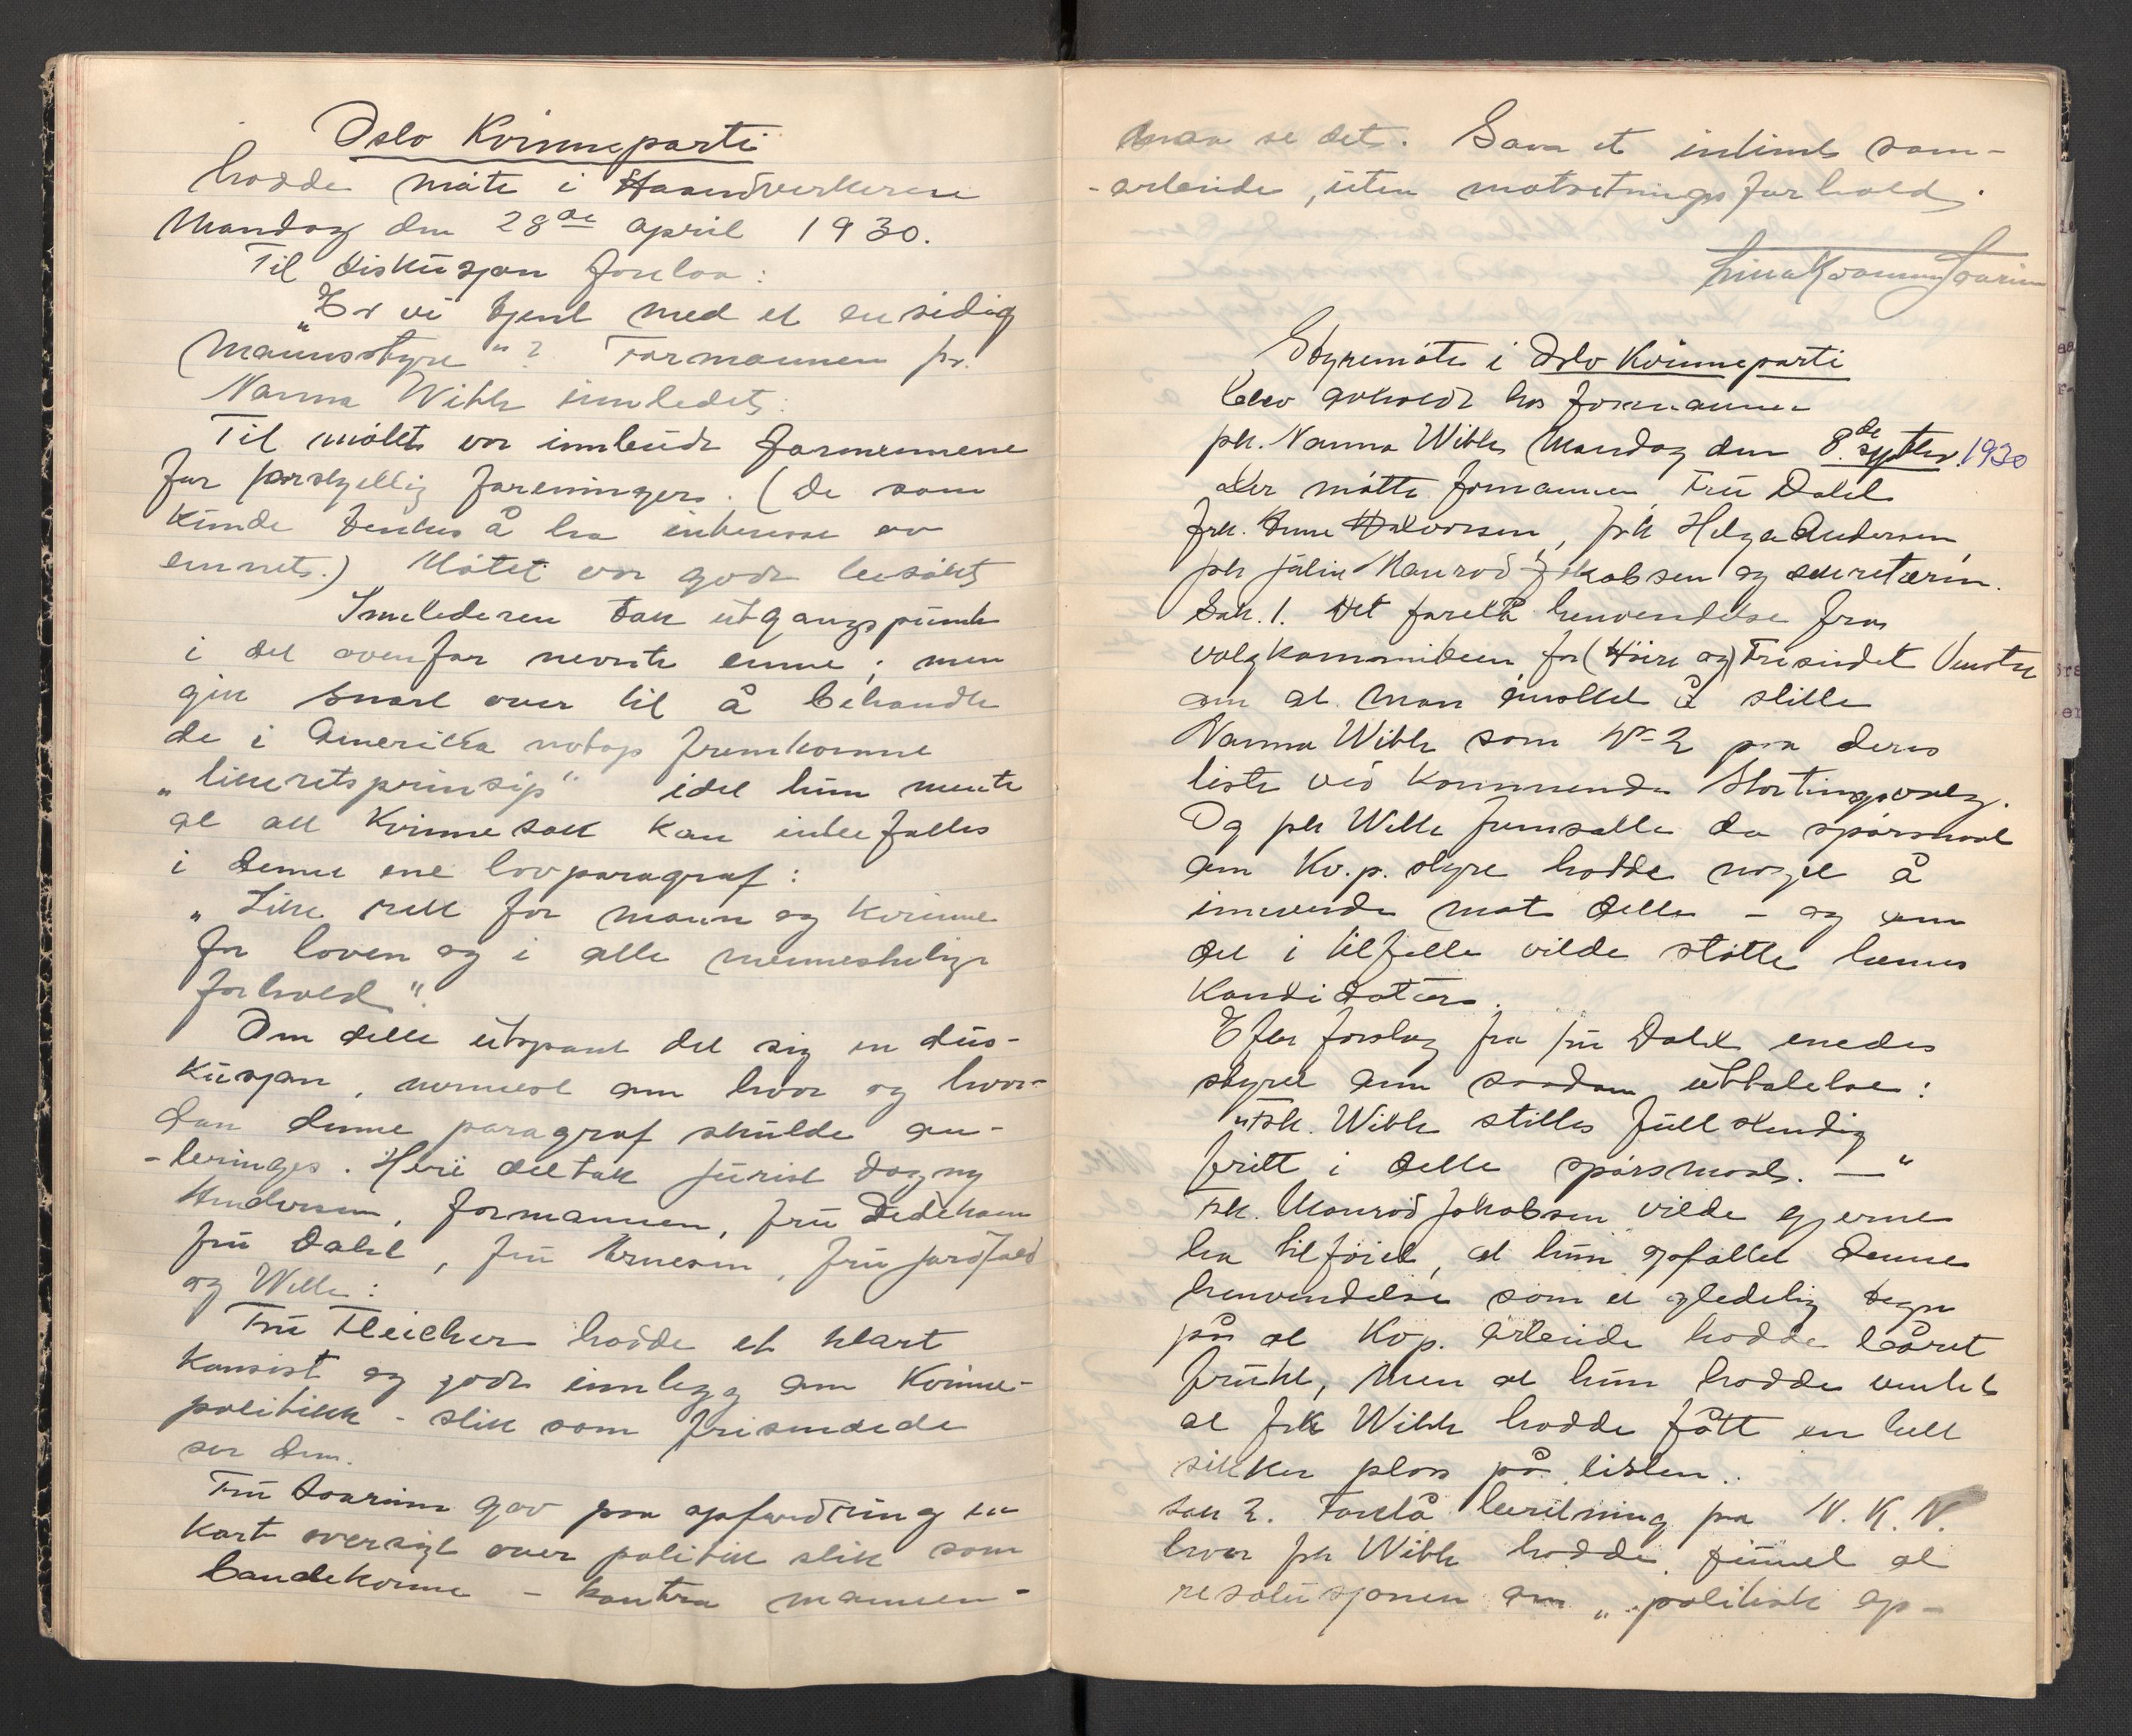 Oslo Kvinneparti
hadde møte i Haandverkeren
Mandag den 28de april 1930.
Til diskusjon forelaa:
"Er vi tjent med et ensidig
Mannsstyre"? Formannen fr.
Nanna With innledet:
Til møtet var innbudt formennene
for forskjellig foreninger. (De som
kunde tenkes å ha interesse av
emnet.) Møtet var godt besøkt
Innlederen tok utgangspunkt
i det ovenfor nevnte emne; men
gik snart over til å behandle
de i Amerika netop fremkomne
"likeretsprinsip" idet hun mente
at all kvinnesak kan innbefattes
i denne ene lovparagraf:
"Like rett for mann og kvinne
for loven og i alle menneskelige
forhold".
Om dette utspant det sig en dis-
kusjon, nermest om hvor og hvor-
dan denne paragraf skulde an-
-bringes. Heri deltok jurist Dagny
Andersen, formannen, fru Dedekam
fru Dahl, fru Arnesen, fru
og Wille:
Fru Fleicher hadde et klart
konsist og godt innlegg om Kvinne-
politikk - slik som frisindede
ser dem.
Fru Soarinn gav paa opfordring en
kort oversigt over politik slik som
bandekonne - kontra mannen-
maa se det. Gava et intimt sam-
-arbeide, uten motsetningsforhold.
Styremøte i Oslo Kvinneparti
blev avholdt hos formannen
frk. Nanna With Mandag den 8.de septbr. 1930
Der møtte formannen, Fru Dahl
frk. Anne Halvorsen, frk Helga Andersen,
frk Julie Monrod Jakobsen og sekretæren.
Sak. 1. Det forelå henvendelse fra
valgkommiteen for (Høire og) Frisindet Venstre
om at man ønsket å stille
Nanna With som No 2 paa deres
liste ved kommende Stortingsvalg.
Og frk With fremsatte da spørsmaal
om Kv.p. styre hadde noget å
innvende mot dette - og om
det i tilfelle vilde støtte hennes
kandidatur.
Efter forslag fra fru Dahl enedes
styret om saadan uttalelse:
"Frk. With stilles fullstendig
fritt i dette spørsmaal. —"
Frk. Monrod Jakobsen vilde gjerne
ha tilføiet, at hun opfattet denne
henvendelse som et gledelig tegn
på at Kvp. arbeide hadde båret
frukt, Men at hun hadde ventet
at frk With hadde fått en helt
sikker plass på listen.
Sak 2. Forelå beretning fra N. K. N.
hvor frk With hadde funnet at
resolusjonen om "politisk op-